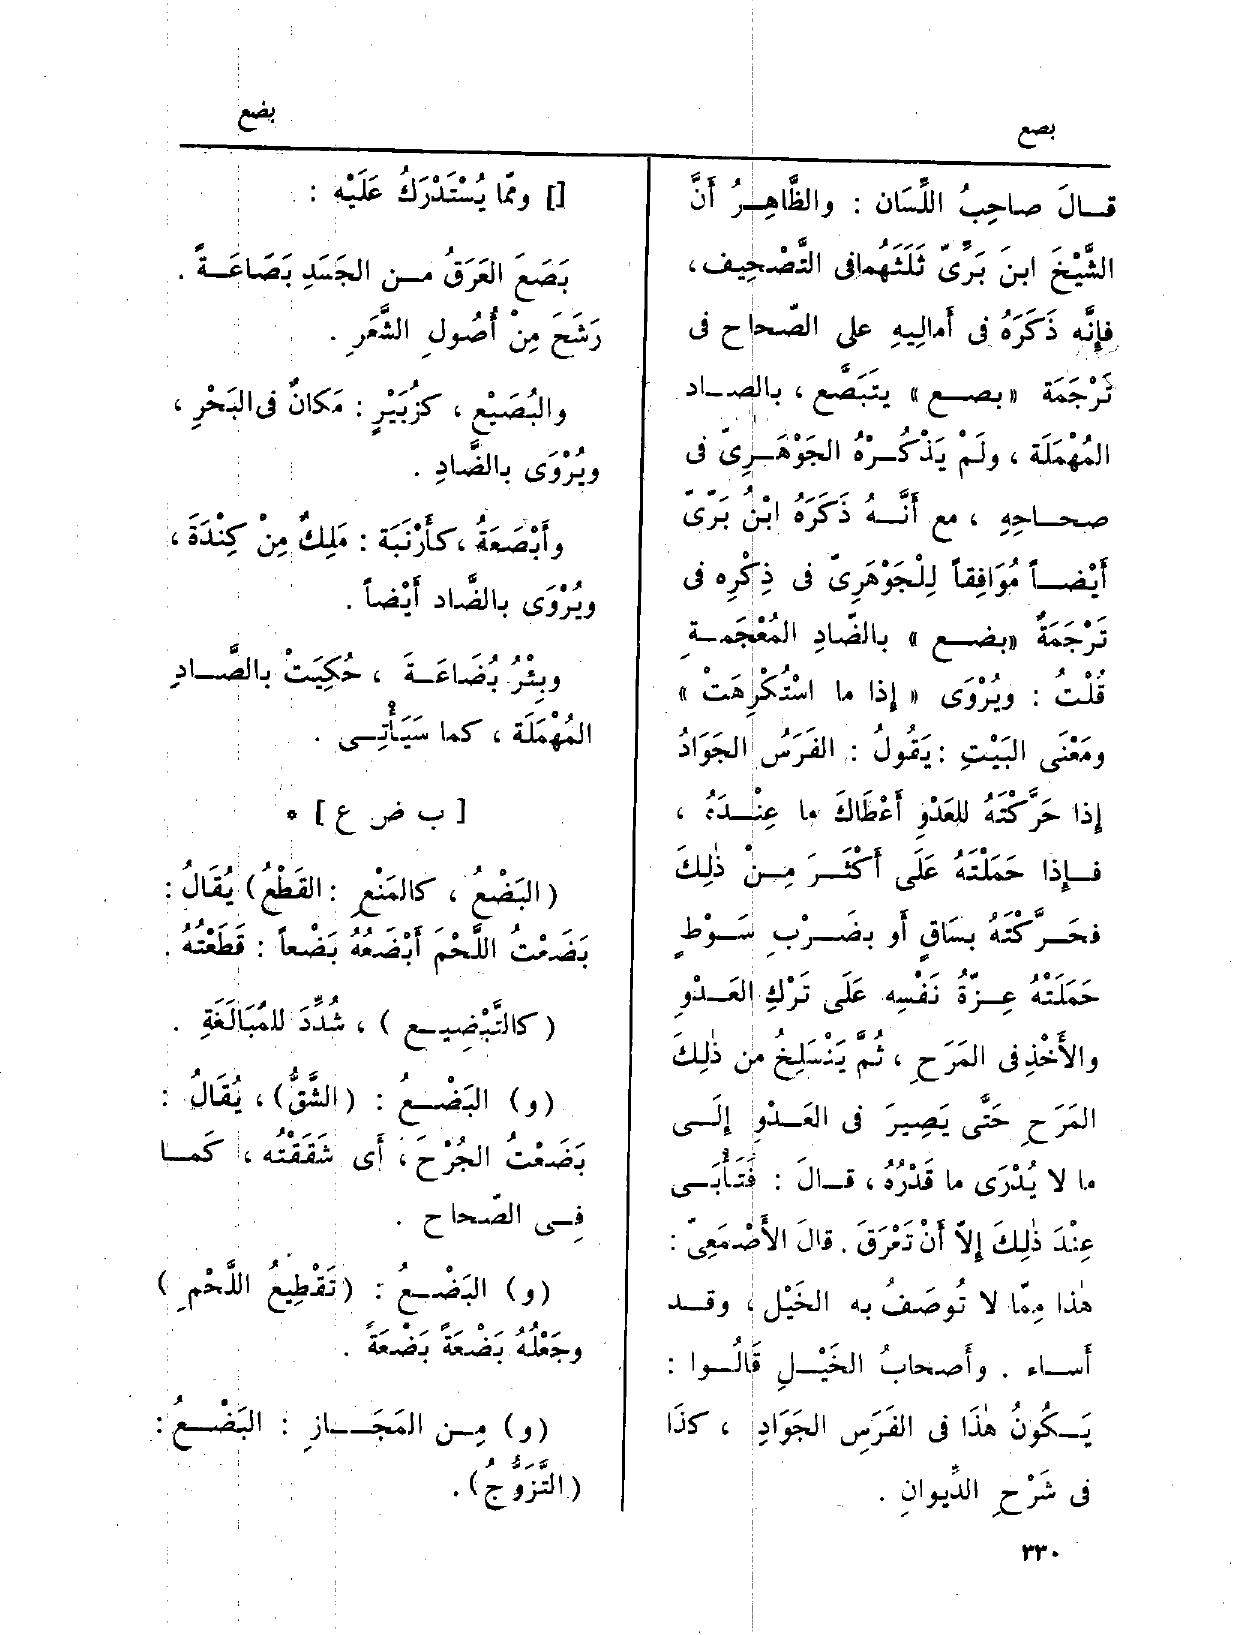 بصع
بضع
قـــالَ صاحِبُ اللِّسَان : والظَّاهِـرُ أَنَّ
الشَّيْخَ ابنَ بَرِّىّ ثَلَثَهُما فى التَّصْحِيف،
فإِنَّه ذَكَرَهُ فى أَمالِيهِ على الصّحاح فى
تَرْجَمَة «بصـع» يتَبَصَّع ، بالصـاد
المُهْمَلَة ، ولَمْ يَذْكُـرْهُ الجَوْهَـرِىّ فى
صحـاحِهِ ، مع أَنَّـهُ ذَكَرَهُ ابْنُ بَرِّىّ
أَيْضـاً مُوَافِقاً لِلْجَوْهَرِىّ فى ذِكْرِه فى
تَرْجَمَةٌ «بضـع» بالضَّادِ المُعْجَمَـةِ
قُلْتُ : ويُرْوَى « إِذا ما اسْتُكْرِهَتْ »
ومَعْنَى البَيْتِ : يَقُولُ : الفَرَسُ الجَوَادُ
إِذا حَرَّكْتَهُ للعَدْوِ أَعْطَاكَ ما عِنْـدَهُ ،
فـإِذا حَمَلْتَهُ عَلَى أَكْثَـرَ مِـنْ ذٰلِكَ
فحَـرَّكْتَهُ بسَاقٍ أَو بضَـرْبِ سَـوْطٍ
حَمَلَتْهُ عِـزَّةُ نَفْسِه عَلَى تَرْكِ العَـدْوِ
والأَخْذِ فى المَرَحِ ، ثُمَّ يَنْسَلِخُ من ذٰلِكَ
المَرَحِ حَتَّى يَصِيرَ فى العَـدْوِ إِلَـى
ما لا يُدْرَى ما قَدْرُهُ ، قـالَ : فَتَأْبَـى
عِنْدَ ذٰلِكَ إِلاّ أَنْ تَعْرَقَ . قالَ الأَصْمَعِىّ :
هٰذا مِمّا لا تُوصَفُ به الخَيْل ، وقـد
أَسـاء . وأَصحابُ الخَيْـلِ قَالُـوا :
يَـكُونُ هٰذَا فى الفَرَسِ الجَوَادِ ، كذَا
فى شَرْحِ الدِّيوانِ .
[] وممّا يُسْتَدْرَكُ عَلَيْه :
بَصَعَ العَرَقُ مـن الجَسَدِ بَصَاعَـةً .
رَشَحَ مِنْ أُصُولِ الشَّعَرِ .
والبُصَيْع ، كزُبَيْرٍ : مَكَانٌ فى البَحْرِ ،
ويُرْوَى بالضَّادِ .
وأَبْصَعَةُ ، كأَرْنَبَة : مَلِكٌ مِنْ كِنْدَةَ ،
ويُرْوَى بالضَّاد أَيْضاً .
وبِئْرُ بُضَاعَـةَ ، حُكِيَتْ بالصَّـادِ
المُهْمَلَة ، كما سَيَأْتِـى .
[ ب ض ع ] *
(البَضْعُ ، كالمَنْعِ : القَطْعُ) يُقَالُ :
بَضَعْتُ اللَّحْمَ أَبْضَعُهُ بَضْعاً : قَطَعْتُه .
(كالتَّبْضِيـع ) ، شُدِّدَ للمُبَالَغَةِ .
(و) البَضْـعُ : (الشَّقُّ) ، يُقَالُ :
بَضَعْتُ الجُرْحَ ، أَى شَقَقْتُه ، كَمـا
فِـى الصّحاح .
(و) البَضْـعُ : (تَقْطِيعُ اللَّحْمِ )
وجَعْلُهُ بَضْعَةً بَضْعَةً .
(و) مِـن المَجَـازِ : البَضْـعُ :
(التَّزَوُّجُ) .
٣٣٠